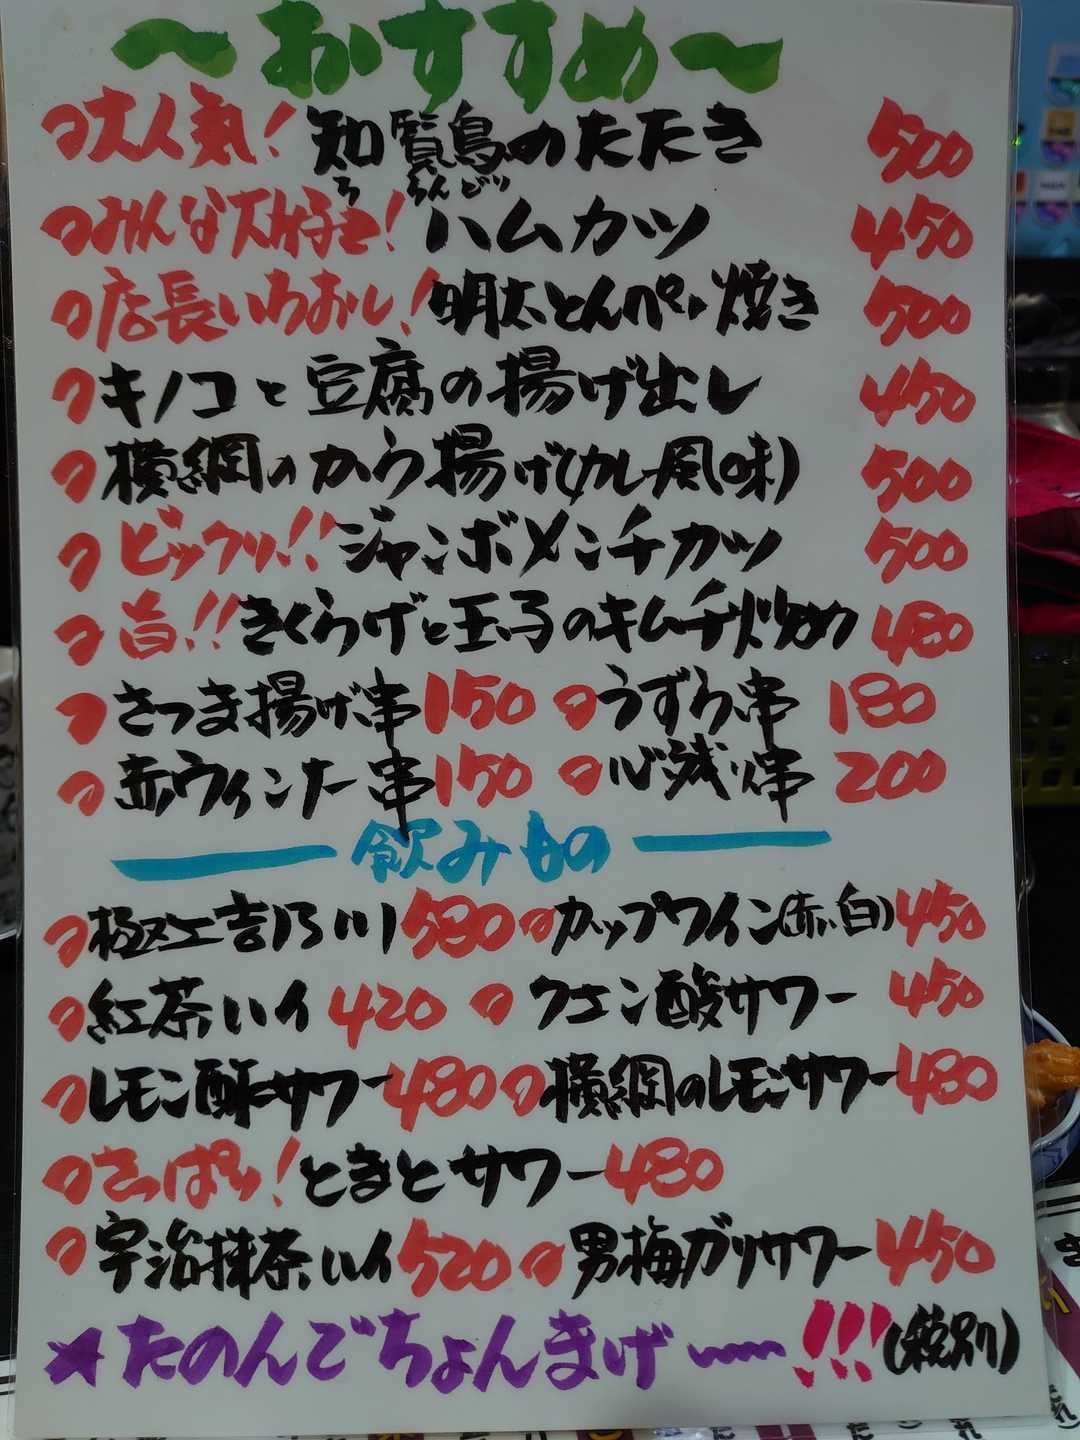 〜おすすめ〜
大人気! 知覧鳥のたたき 500
ちらんどり
みんな大好き! ハムカツ 450
店長いちおし! 明太とんぺい焼き 500
キノコと豆腐の揚げ出し 450
横綱のから揚げ(カレー風味) 500
ビックリ!! ジャンボメンチカツ 500
旨!! きくらげと玉子のキムチ炒め 480
さつま揚げ串 150 うずら串 180
赤ウインナー串 150 心残り串 200
飲みもの
極上吉乃川 580 カップワイン(赤・白) 450
紅茶ハイ 420 クエン酸サワー 450
レモン酢サワー 480 横綱のレモンサワー 480
さっぱり! とまとサワー 480
宇治抹茶ハイ 520 男梅ガリサワー 450
★たのんでちょんまげ〜〜!!! (税別)